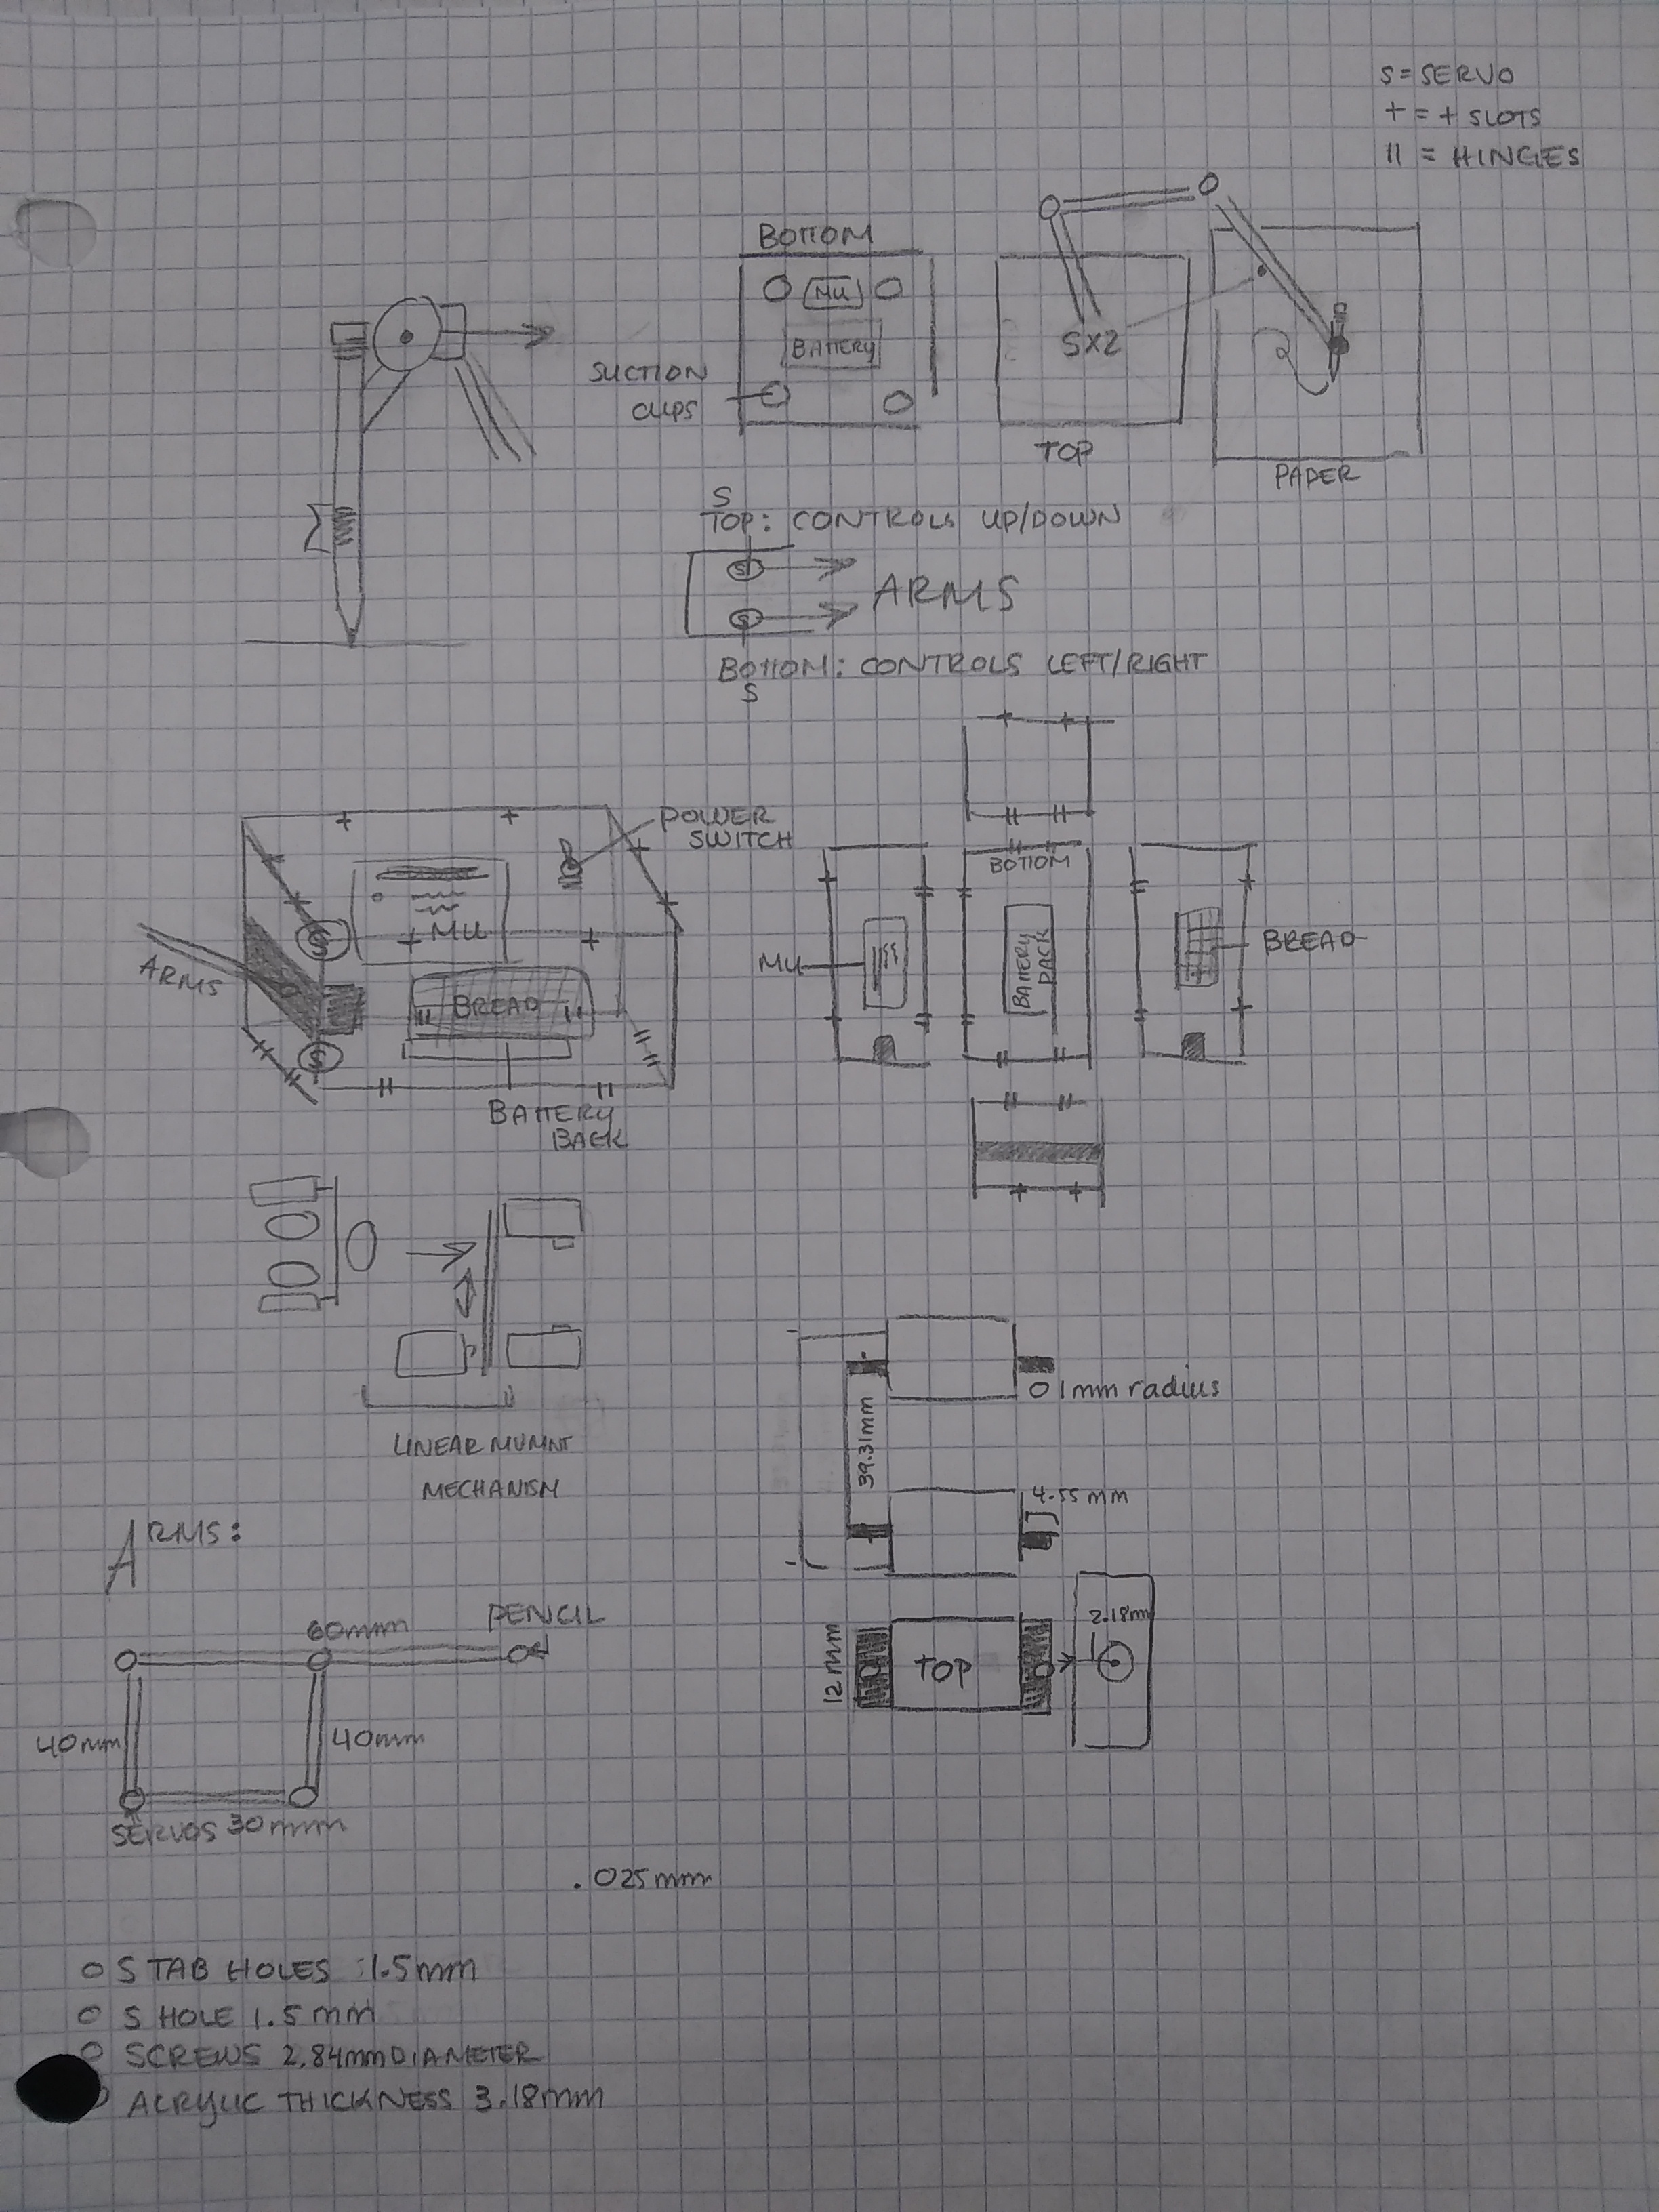 S = SERVO
+ = + SLOTS
II = HINGES
BOTTOM
MU
BATTERY
SUCTION
CUPS
SX2
TOP
PAPER
S
TOP: CONTROLS UP/DOWN
S
S
ARMS
BOTTOM: CONTROLS LEFT/RIGHT
S
POWER
SWITCH
MU
S
ARMS
BREAD
S
BATTERY
BACK
BOTTOM
MU
BATTERY
PACK
BREAD
LINEAR MVMNT
MECHANISM
O 1mm radius
39.31mm
4.55 mm
12 mm
TOP
2.18m
ARMS:
60mm
PENCIL
40mm
40mm
SERVOS 30mm
.025mm
O S TAB HOLES : 1.5mm
O S HOLE 1.5 mm
O SCREWS 2.84mm DIAMETER
O ACRYLIC THICKNESS 3.18mm